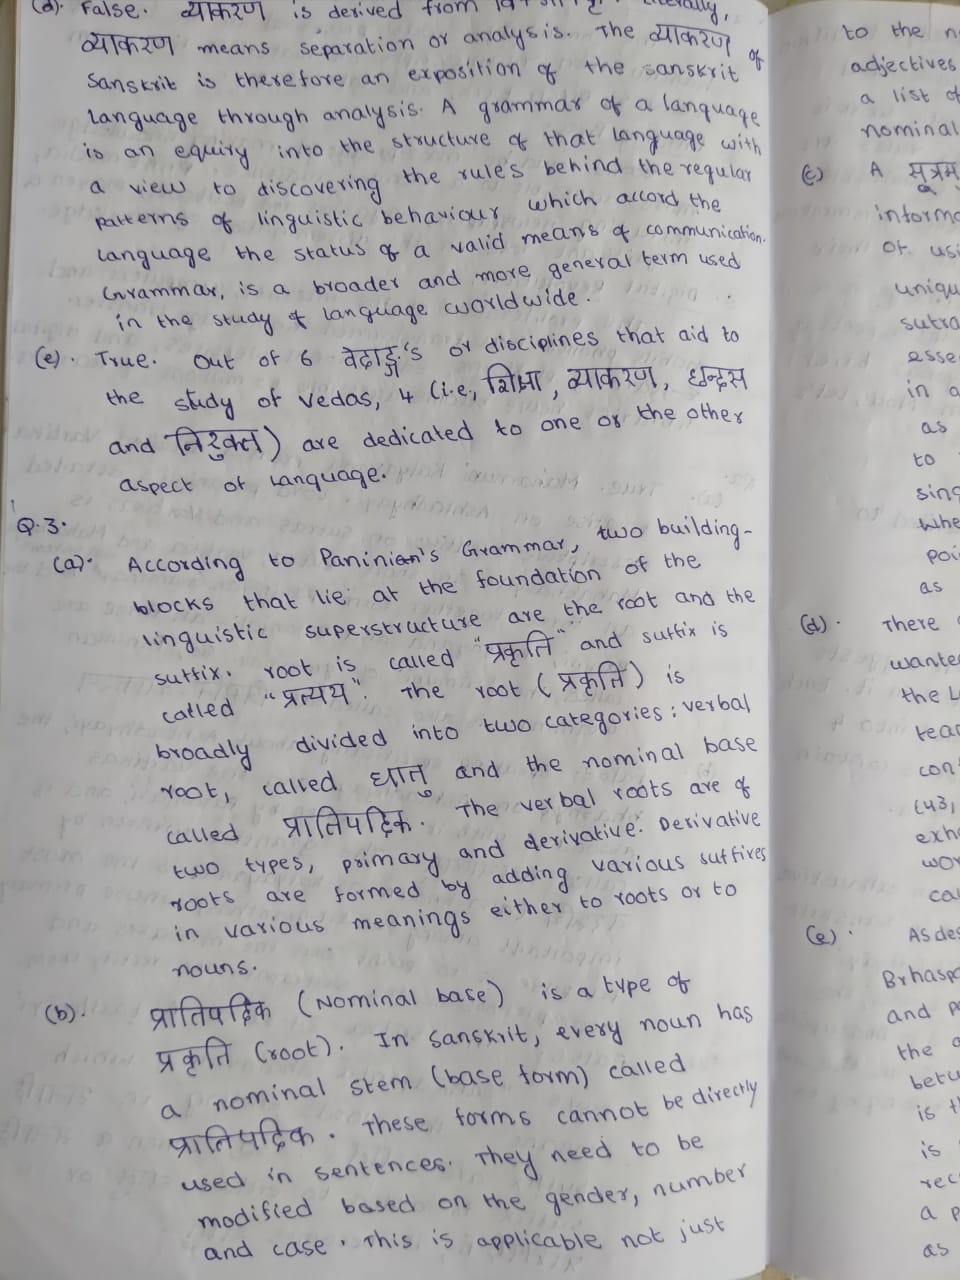 (d). False. व्याकरण is derived from
व्याकरण means separation or analysis. The व्याकरण of
Sanskrit is therefore an exposition of the sanskrit
language through analysis. A grammar of a language
is an equiry into the structure of that language with
a view to discovering the rules behind the regular
patterns of linguistic behaviour which accord the
language the status of a valid means of communication.
Grammar, is a broader and more general term used
in the study of language worldwide.
(e). True. Out of 6 वेदाङ्ग's or disciplines that aid to
the study of Vedas, 4 (i.e., शिक्षा, व्याकरण, छन्दस
and निरुक्त) are dedicated to one or the other
aspect of language.
Q.3.
(a). According to Paninian's Grammar, two building-
blocks that lie at the foundation of the
linguistic superstructure are the root and the
suffix. root is called "प्रकृति" and suffix is
called "प्रत्यय". The root (प्रकृति) is
broadly divided into two categories: verbal
root, called धातु and the nominal base
called प्रातिपद्रिक. The verbal roots are of
two types, primary and derivative. Derivative
roots are formed by adding various suffixes
in various meanings either to roots or to
nouns.
(b). प्रातिपद्रिक (Nominal base) is a type of
प्रकृति (root). In sanskrit, every noun has
a nominal stem (base form) called
प्रातिपद्रिक. These forms cannot be directly
used in sentences. They need to be
modified based on the gender, number
and case. This is applicable not just
to the
adjectives
a list of
nominal
(c) A सूत्रम
or
sutra
in a
as
to
as
(d). There
the
(43,
(e).
and
the
is
is
a
as